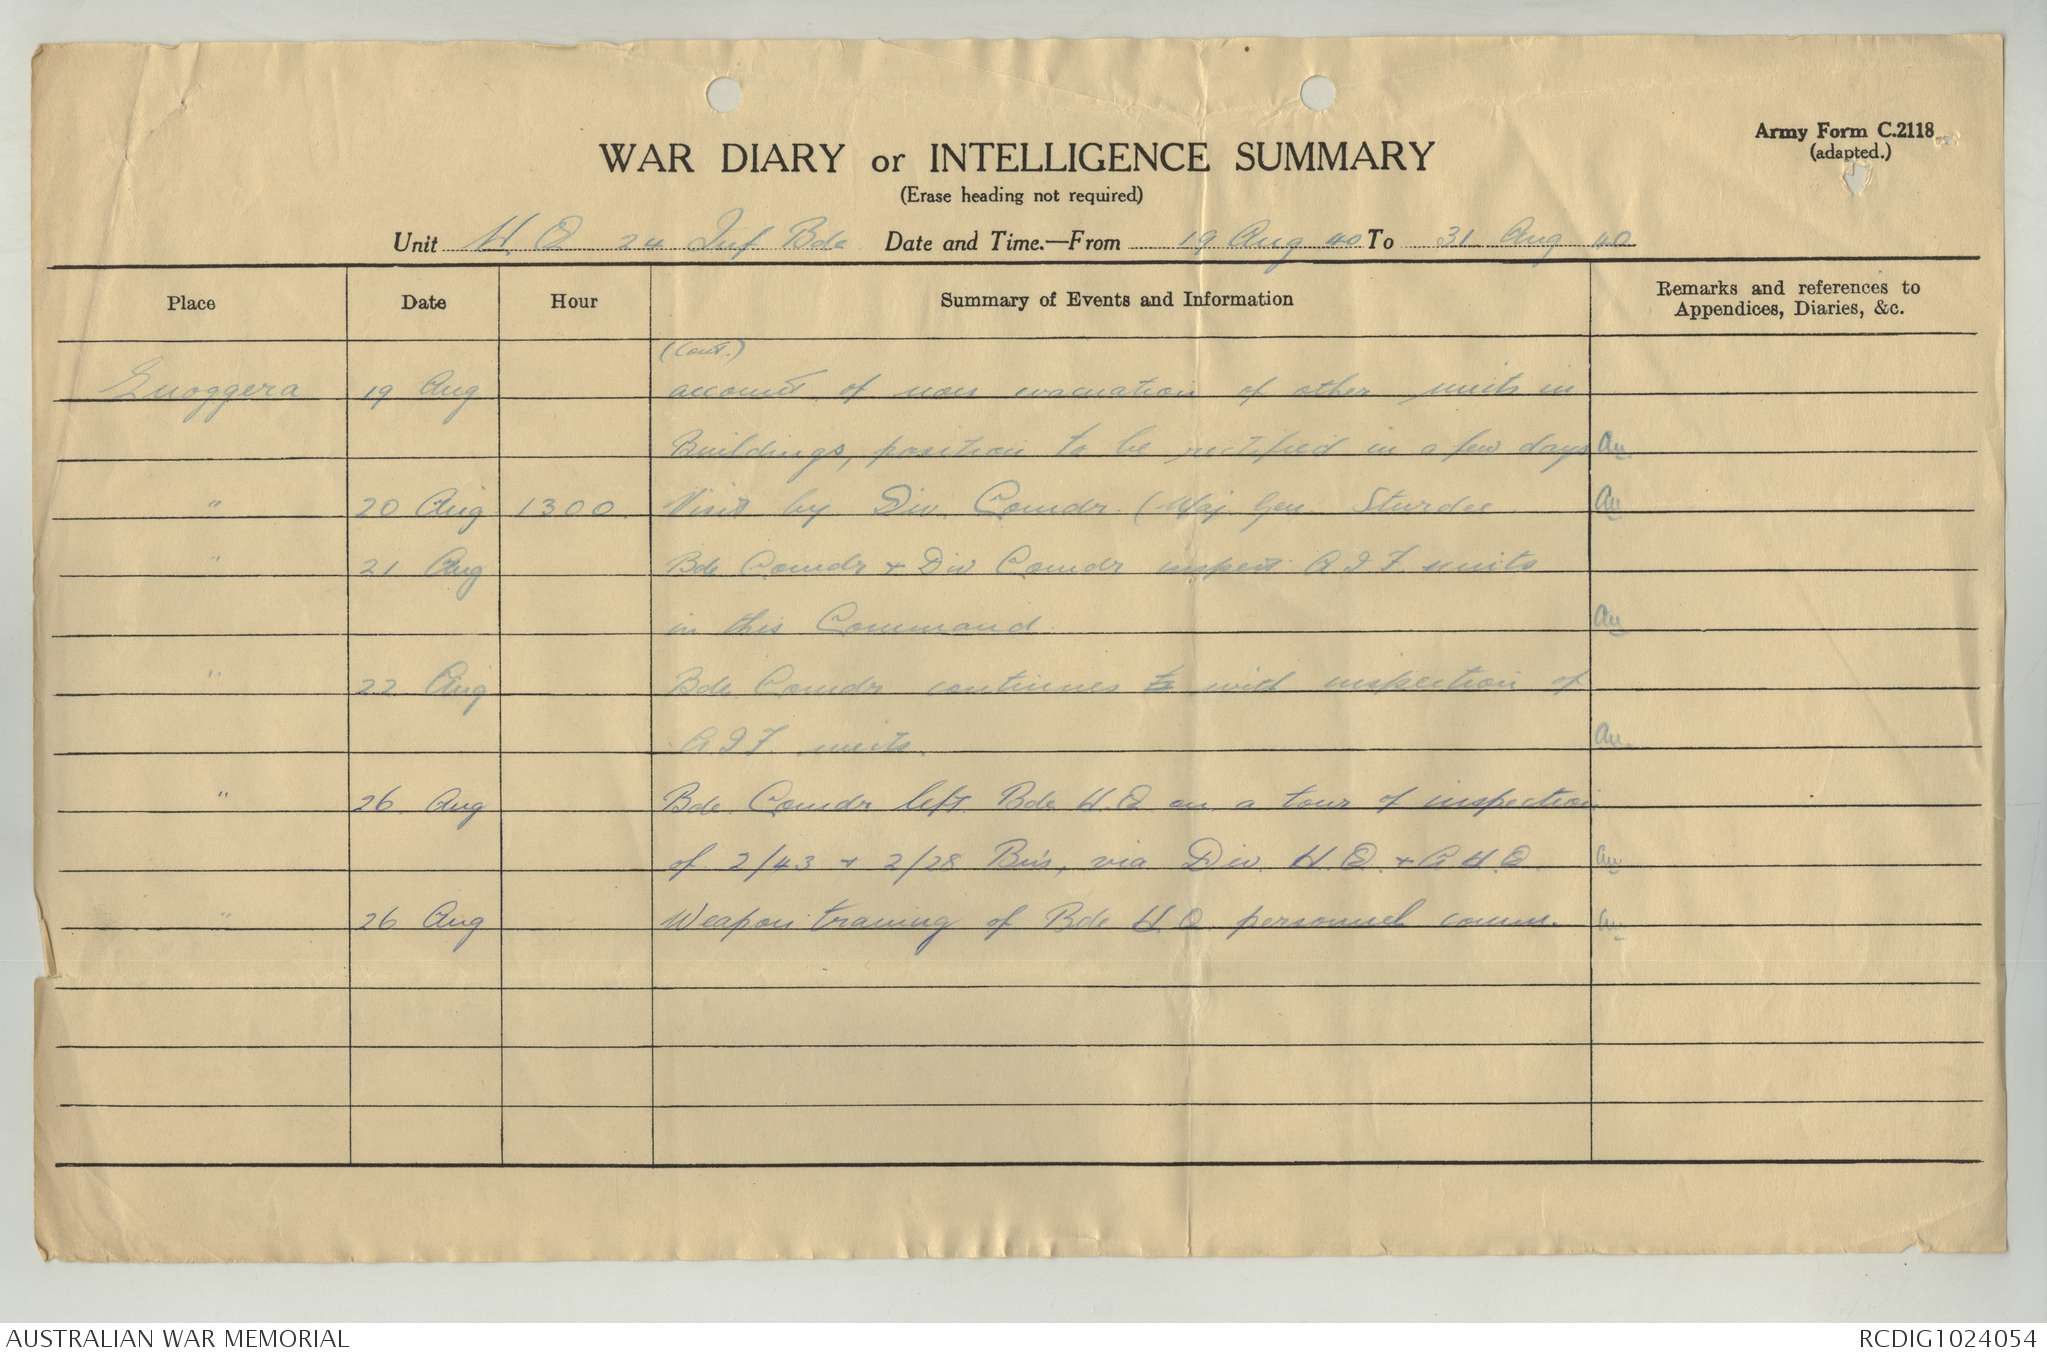 Army Form C.2118
(adapted.)
WAR DIARY or INTELLIGENCE SUMMARY
(Erase heading not required)
Unit H.Q 24 Inf Bde Date and Time.—From 19 Aug 40 To 31 Aug 40
Place Date Hour Summary of Events and Information Remarks and references to
Appendices, Diaries, &c.
(Cont.)
Enoggera 19 Aug account of non evacuation of other units in
Buildings, position to be rectified in a few days
" 20 Aug 1300 Visit by Div. Comdr. (Maj Gen Sturdee
" 21 Aug Bde Comdr + Div Comdr inspect A I F units
in this Command.
" 22 Aug Bde Comdr continues to with inspection of
A I F units.
" 26 Aug Bde. Comdr left Bde H.Q on a tour of inspection
of 2/43 + 2/28 Bn's, via Div. H.Q. + A.H.Q.
" 26 Aug Weapon training of Bde H.Q personnel comm.
AUSTRALIAN WAR MEMORIAL
RCDIG1024054